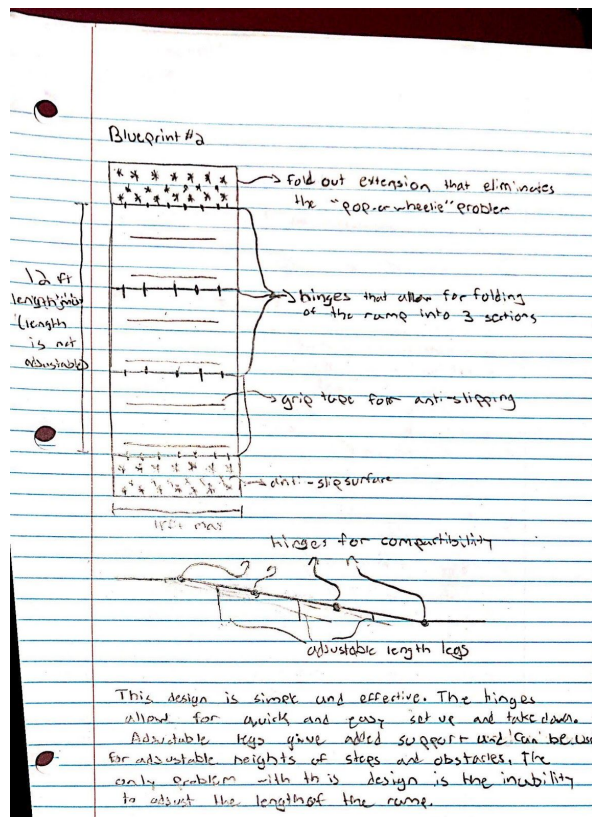 Blueprint #2
fold out extension that eliminates
the "pop-a-wheelie" problem
12 ft
length
(length
is not
adjustable)
hinges that allow for folding
of the ramp into 3 sections
grip tape for anti-slipping
anti-slip surface
max
hinges for compartibility
adjustable length legs
This design is simple and effective. The hinges
allow for quick and easy set up and take down.
Adjustable legs give added support and can be us
for adjustable heights of steps and obstacles. The
only problem with this design is the inability
to adjust the length of the ramp.